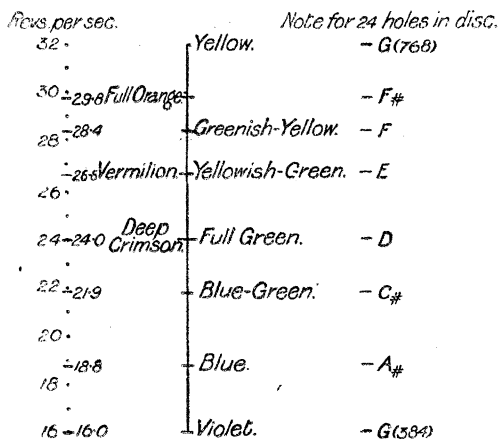 Revs. per sec. Note for 24 holes in disc.
32 Yellow. – G (768)
30 29·8 Full Orange. – F#
28·4 Greenish-Yellow. – F
28
26·6 Vermilion. Yellowish-Green. – E
26
Deep
24 24·0 Crimson. Full Green. – D
22 21·9 Blue-Green. – C#
20
18·8 Blue. – A#
18
16 16·0 Violet. – G (384)